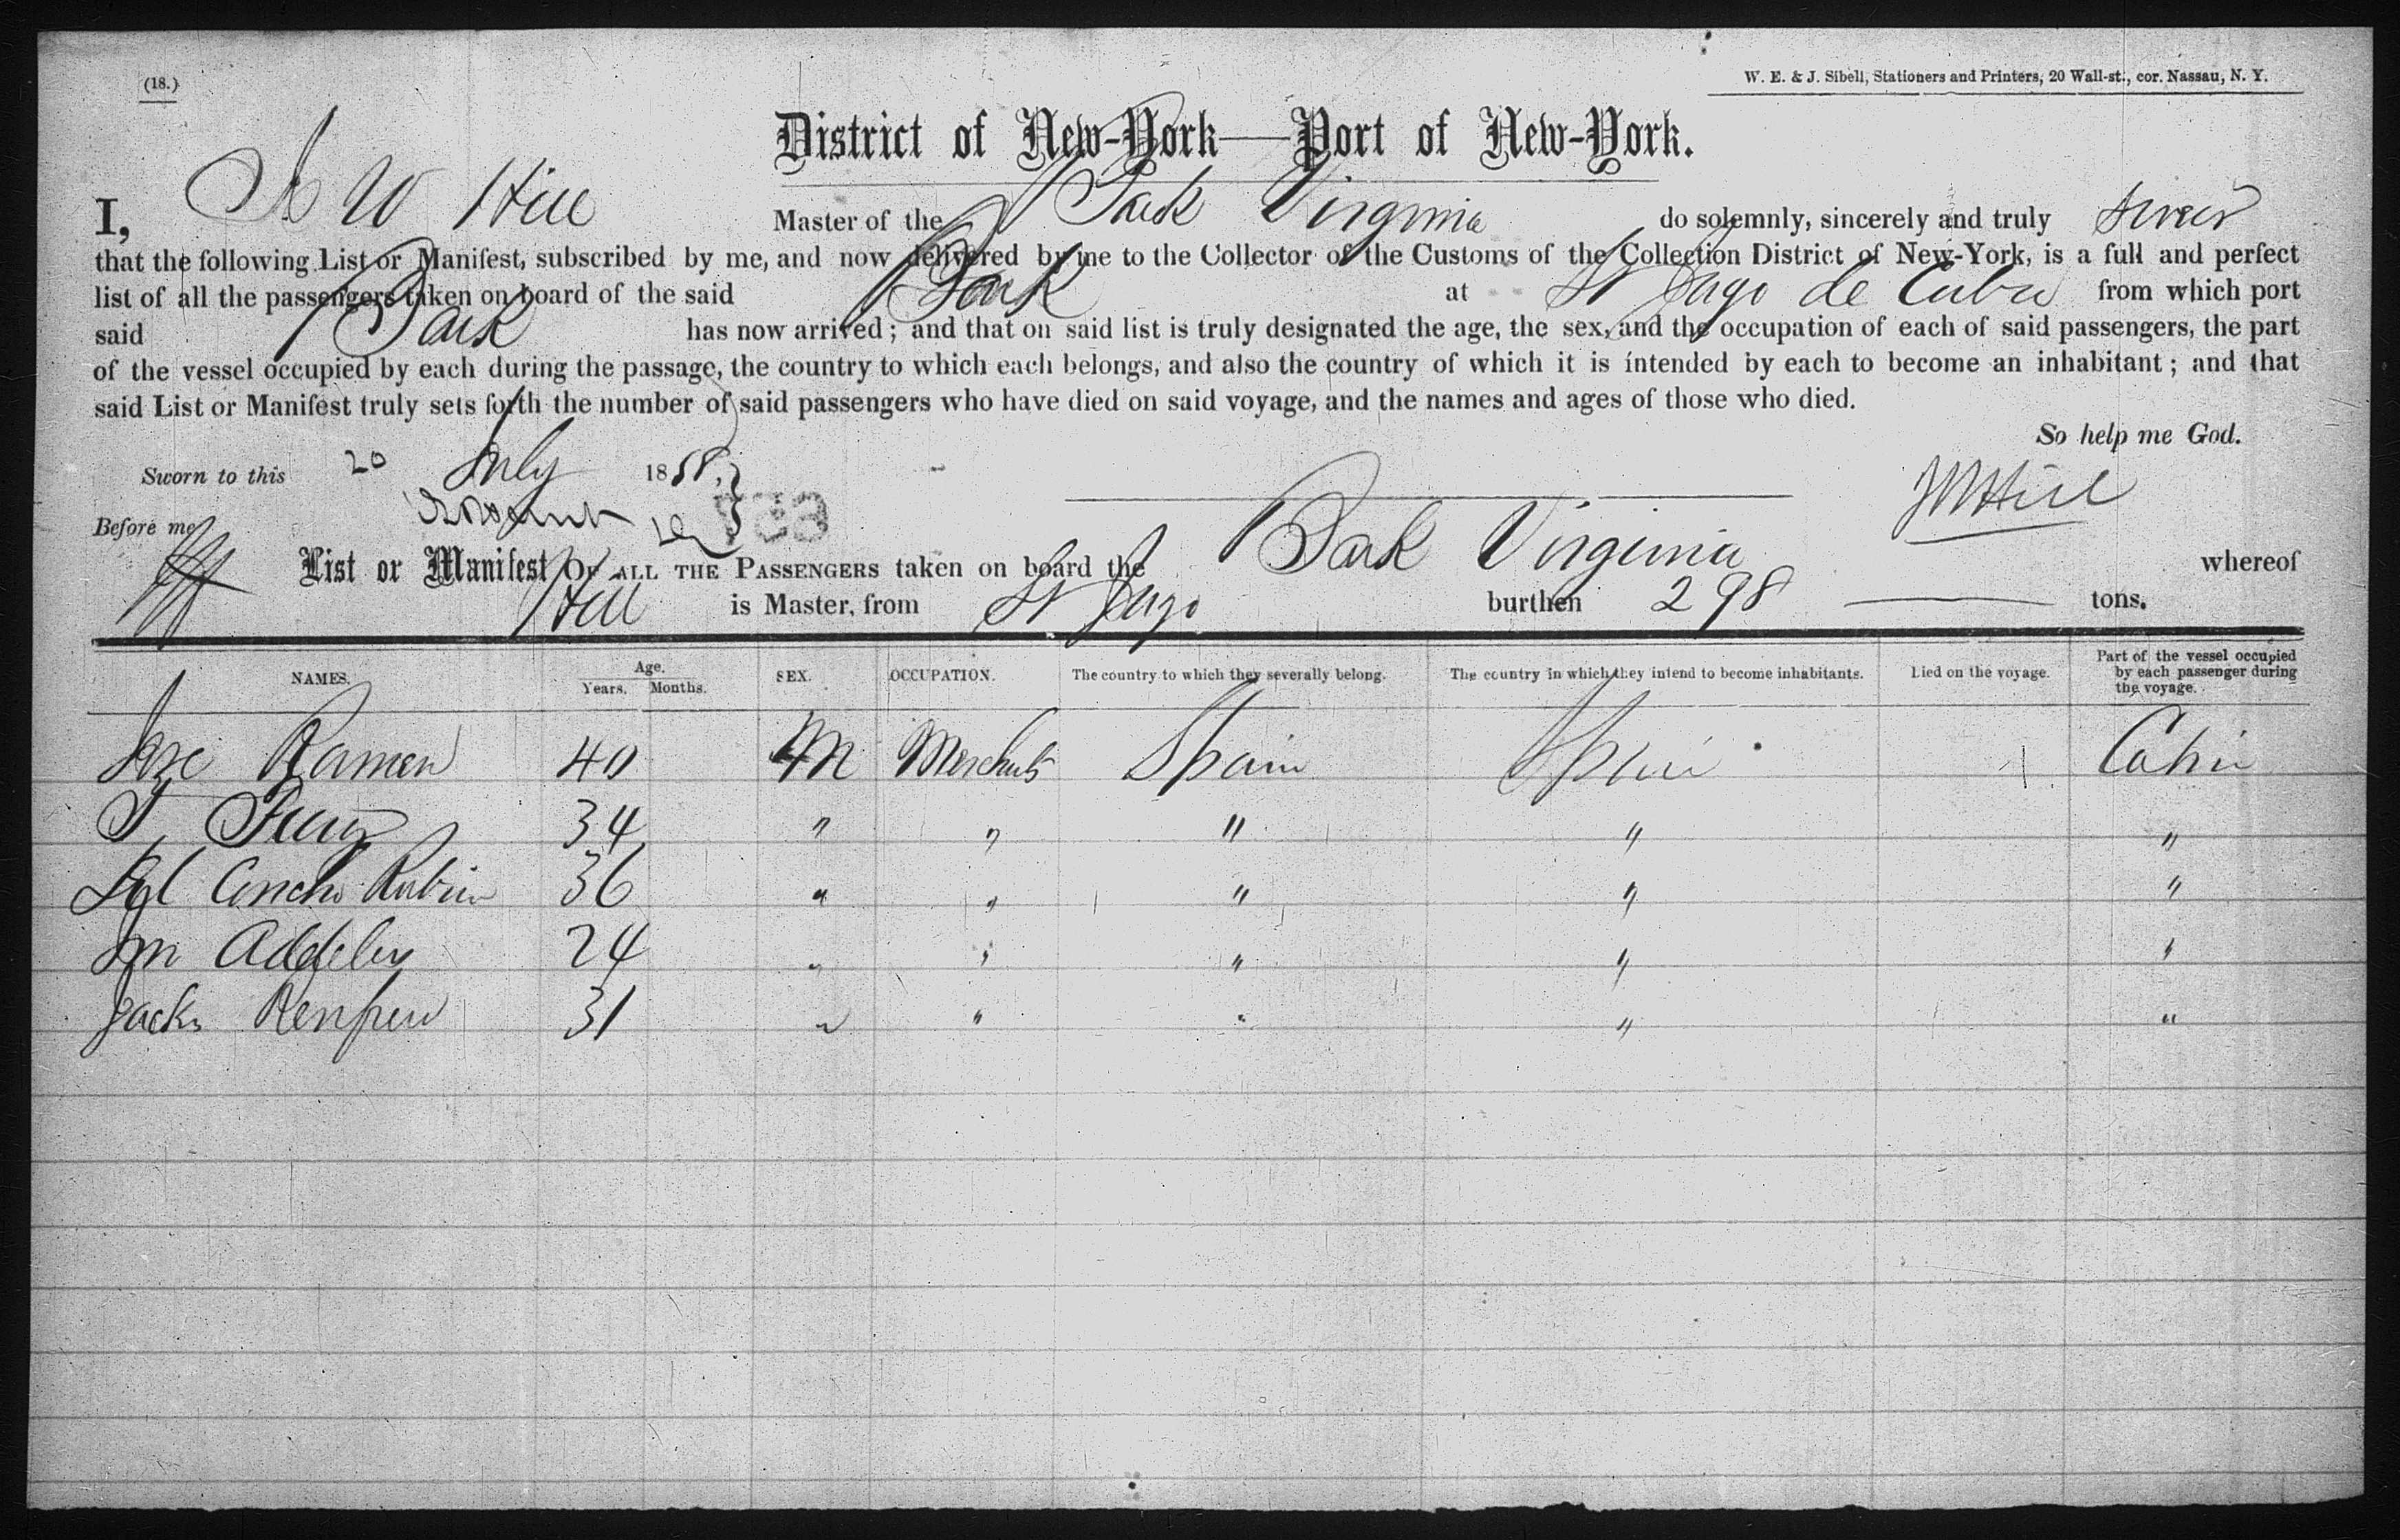 (18.)
W. E. & J. Sibell, Stationers and Printers, 20 Wall-st., cor. Nassau, N. Y.
District of New-York—Port of New-York.
I, W Hill Master of the Bark Virginia do solemnly, sincerely and truly swear
that the following List or Manifest, subscribed by me, and now delivered by me to the Collector of the Customs of the Collection District of New-York, is a full and perfect
list of all the passengers taken on board of the said Bark at St Jago de Cuba from which port
said Bark has now arrived; and that on said list is truly designated the age, the sex, and the occupation of each of said passengers, the part
of the vessel occupied by each during the passage, the country to which each belongs, and also the country of which it is intended by each to become an inhabitant; and that
said List or Manifest truly sets forth the number of said passengers who have died on said voyage, and the names and ages of those who died.
So help me God.
Sworn to this 20 July 1858,
Hill
Before me
List or Manifest OF ALL THE PASSENGERS taken on board the Bark Virginia whereof
Hill is Master, from St Jago burthen 298 tons.
NAMES. Age. Years. Months. SEX. OCCUPATION. The country to which they severally belong. The country in which they intend to become inhabitants. Died on the voyage. Part of the vessel occupied by each passenger during the voyage.
Jose Ramon 40 M Merchants Spain Spain Cabin
34 " " " " "
Concho Rubin 36 " " " " "
24 " " " " "
31 " " " " "